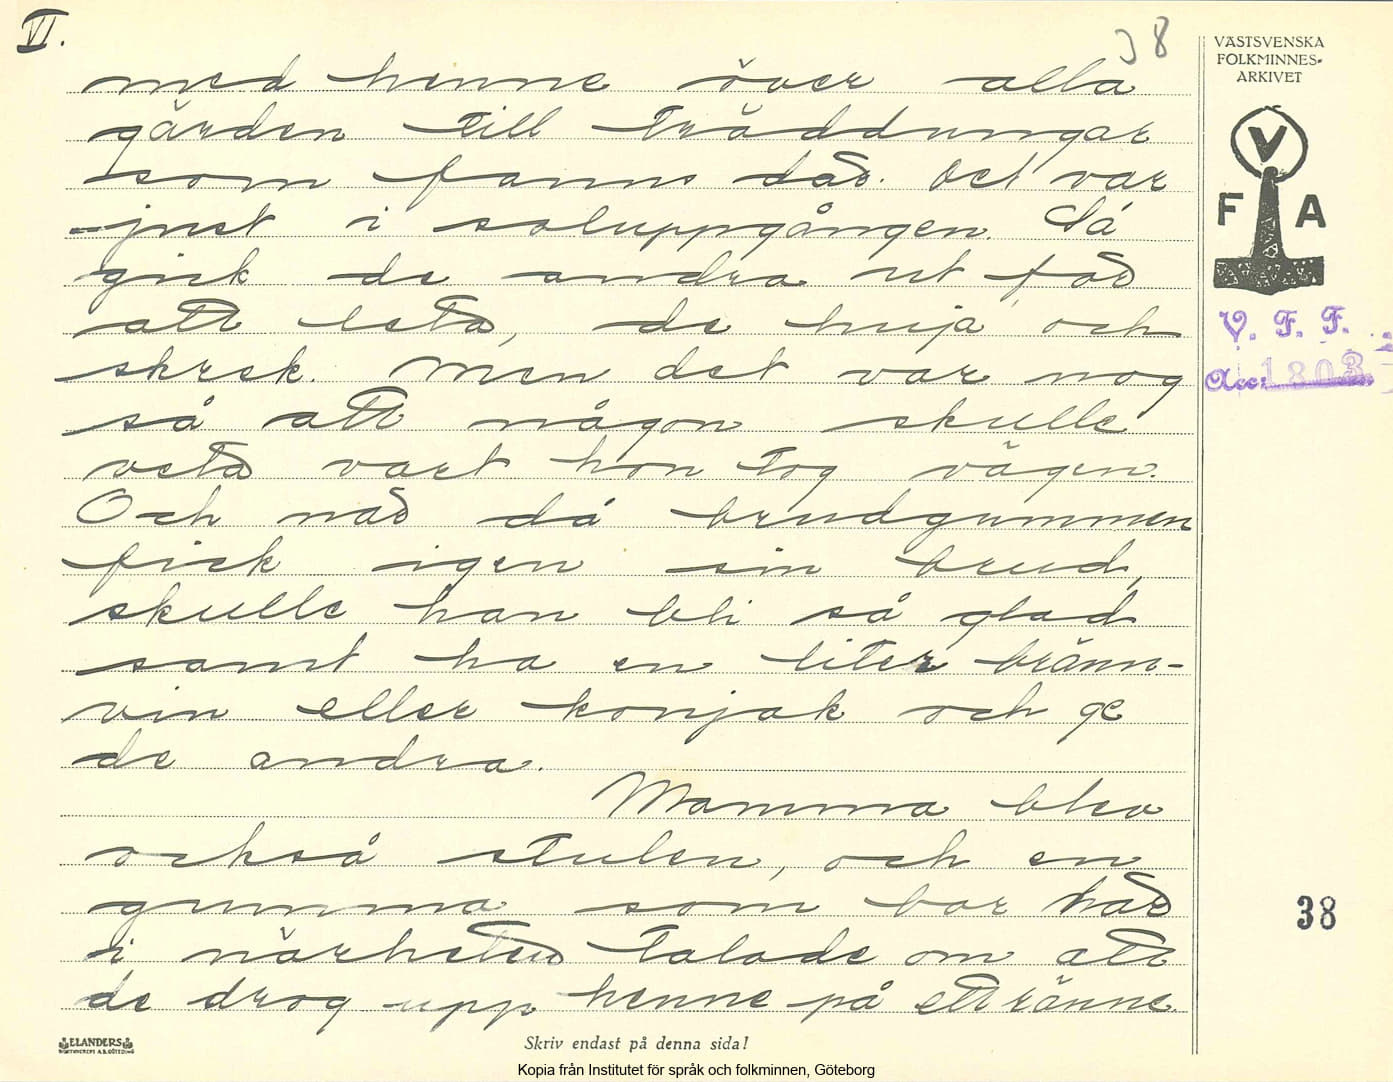 VI.
38
VÄSTSVENSKA
FOLKMINNES-
ARKIVET
V
F A
V. F. F.
Acc: 1803.
med henne över alla
gärden till träddungar
som fanns där. Det var
just i soluppgången. Så
gick de andra ut för
att leta, de huja och
skrek. Men det var nog
så att någon skulle
veta vart hon tog vägen.
Och när då brudgummen
fick igen sin brud,
skulle han bli så glad
samt ha en liter bränn-
vin eller konjak och ge
de andra.
Mamma blev
också stulen, och en
gumma som bor här
i närheten talade om att
de drog upp henne på ett ränne.
38
ELANDERS
Skriv endast på denna sida!
Kopia från Institutet för språk och folkminnen, Göteborg